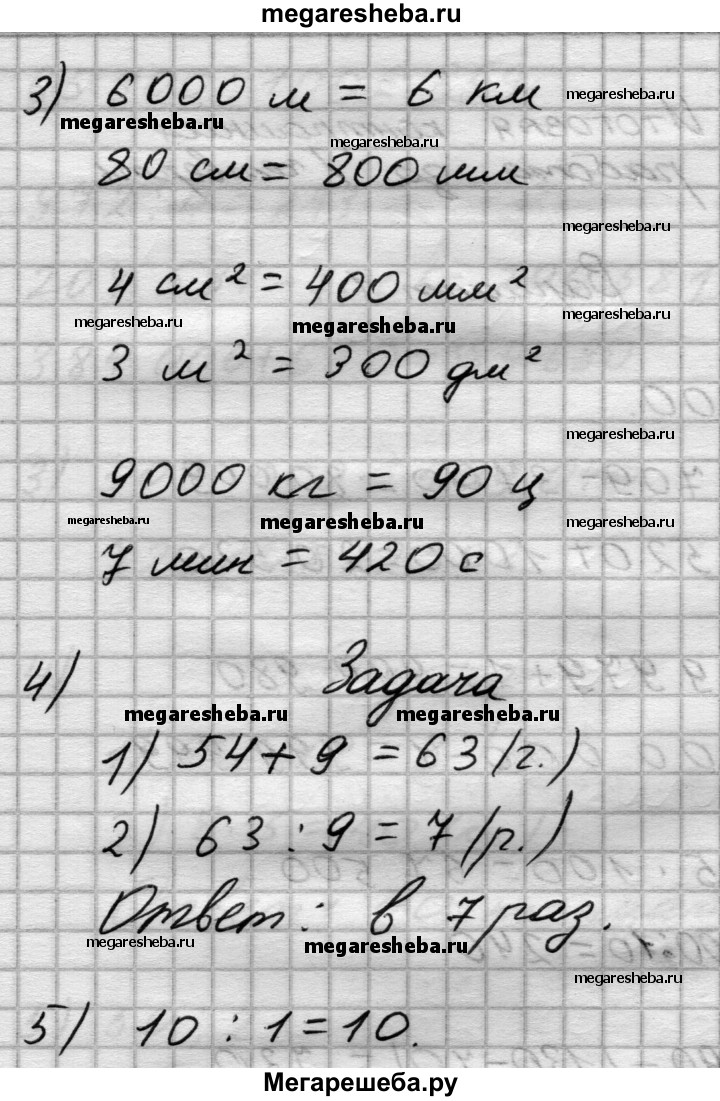 megaresheba.ru
3) 6000 м = 6 км megaresheba.ru
megaresheba.ru megaresheba.ru
80 см = 800 мм
megaresheba.ru
4 см² = 400 мм²
megaresheba.ru megaresheba.ru megaresheba.ru
3 м² = 300 дм²
megaresheba.ru
9000 кг = 90 ц
megaresheba.ru megaresheba.ru megaresheba.ru
7 мин = 420 с
4) Задача
megaresheba.ru megaresheba.ru
1) 54 + 9 = 63 (г.)
2) 63 : 9 = 7 (р.)
Ответ: в 7 раз.
megaresheba.ru megaresheba.ru
megaresheba.ru
5) 10 : 1 = 10.
Мегарешеба.ру